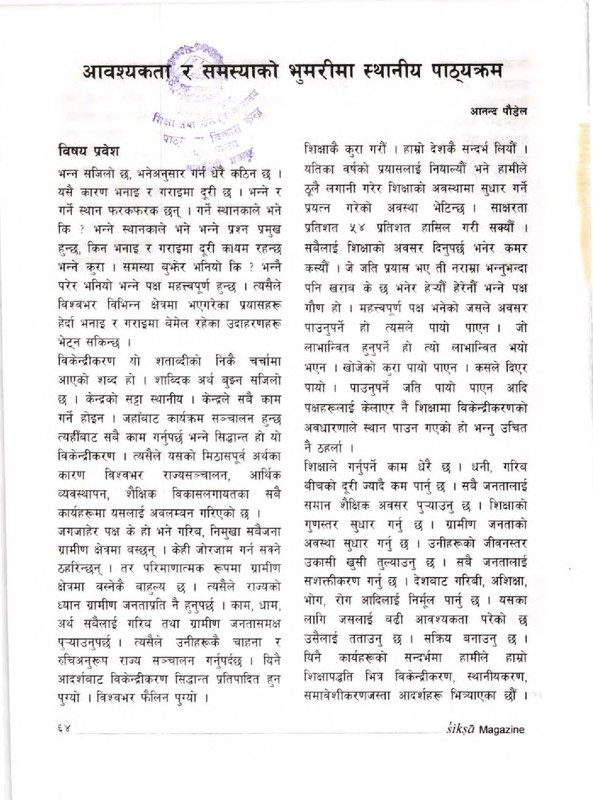 आवश्यकता र समस्याको भुमरीमा स्थानीय पाठ्यक्रम
आनन्द पौडेल
विषय प्रवेश
भन्न सजिलो छ, भनेअनुसार गर्न धेरै कठिन छ ।
यसै कारण भनाइ र गराइमा दूरी छ । भन्ने र
गर्ने स्थान फरकफरक छन् । गर्ने स्थानकाले भने
कि ? भन्ने स्थानकाले भने भन्ने प्रश्न प्रमुख
हुन्छ, किन भनाइ र गराइमा दूरी कायम रहन्छ
भन्ने कुरा । समस्या बुझेर भनियो कि ? भन्नै
परेर भनियो भन्ने पक्ष महत्त्वपूर्ण हुन्छ । त्यसैले
विश्वभर विभिन्न क्षेत्रमा भएगरेका प्रयासहरू
हेर्दा भनाइ र गराइमा बेमेल रहेका उदाहरणहरू
भेट्न सकिन्छ ।
विकेन्द्रीकरण यो शताब्दीको निकै चर्चामा
आएको शब्द हो । शाब्दिक अर्थ बुझ्न सजिलो
छ । केन्द्रको सट्टा स्थानीय । केन्द्रले सबै काम
गर्ने होइन । जहाँबाट कार्यक्रम सञ्चालन हुन्छ
त्यहीँबाट सबै काम गर्नुपर्छ भन्ने सिद्धान्त हो यो
विकेन्द्रीकरण । त्यसैले यसको मिठासपूर्ण अर्थका
कारण विश्वभर राज्यसञ्चालन, आर्थिक
व्यवस्थापन, शैक्षिक विकासलगायतका सबै
कार्यहरूमा यसलाई अवलम्बन गरिएको छ ।
जगजाहेर पक्ष के हो भने गरिब, निमुखा सबैजना
ग्रामीण क्षेत्रमा बस्छन् । केही जोरजाम गर्न सक्ने
ठहरिन्छन् । तर परिमाणात्मक रूपमा ग्रामीण
क्षेत्रमा बस्नेकै बाहुल्य छ । त्यसैले राज्यको
ध्यान ग्रामीण जनताप्रति नै हुनुपर्छ । काम, धाम,
अर्थ सबैलाई गरिब तथा ग्रामीण जनतासमक्ष
पुऱ्याउनुपर्छ । त्यसैले उनीहरूकै चाहना र
रुचिअनुरूप राज्य सञ्चालन गर्नुपर्दछ । यिनै
आदर्शबाट विकेन्द्रीकरण सिद्धान्त प्रतिपादित हुन
पुग्यो । विश्वभर फैलिन पुग्यो ।
शिक्षाकै कुरा गरौं । हाम्रो देशकै सन्दर्भ लियौं ।
यतिका वर्षको प्रयासलाई नियाल्यौँ भने हामीले
ठूलै लगानी गरेर शिक्षाको अवस्थामा सुधार गर्ने
प्रयत्न गरेको अवस्था भेटिन्छ । साक्षरता
प्रतिशत ५४ प्रतिशत हासिल गरी सक्यौं ।
सबैलाई शिक्षाको अवसर दिनुपर्छ भनेर कमर
कस्यौं । जे जति प्रयास भए ती नराम्रा भन्नुभन्दा
पनि खराब के छ भनेर हेर्‍यौं हेरेनौं भन्ने पक्ष
गौण हो । महत्त्वपूर्ण पक्ष भनेको जसले अवसर
पाउनुपर्ने हो त्यसले पायो पाएन । जो
लाभान्वित हुनुपर्ने हो त्यो लाभान्वित भयो
भएन । खोजेको कुरा पायो पाएन । कसले दिएर
पायो । पाउनुपर्ने जति पायो पाएन आदि
पक्षहरूलाई केलाएर नै शिक्षामा विकेन्द्रीकरणको
अवधारणाले स्थान पाउन गएको हो भन्नु उचित
नै ठहर्ला ।
शिक्षाले गर्नुपर्ने काम धेरै छ । धनी, गरिब
बीचको दूरी ज्यादै कम पार्नु छ । सबै जनतालाई
समान शैक्षिक अवसर पुऱ्याउनु छ । शिक्षाको
गुणस्तर सुधार गर्नु छ । ग्रामीण जनताको
अवस्था सुधार गर्नु छ । उनीहरूको जीवनस्तर
उकासी खुसी तुल्याउनु छ । सबै जनतालाई
सशक्तीकरण गर्नु छ । देशबाट गरिबी, अशिक्षा,
भोग, रोग आदिलाई निर्मूल पार्नु छ । यसका
लागि जसलाई बढी आवश्यकता परेको छ
उसैलाई तताउनु छ । सक्रिय बनाउनु छ ।
यिनै कार्यहरूको सन्दर्भमा हामीले हाम्रो
शिक्षापद्धति भित्र विकेन्द्रीकरण, स्थानीयकरण,
समावेशीकरणजस्ता आदर्शहरू भित्र्याएका छौं ।
६४
śikṣā Magazine